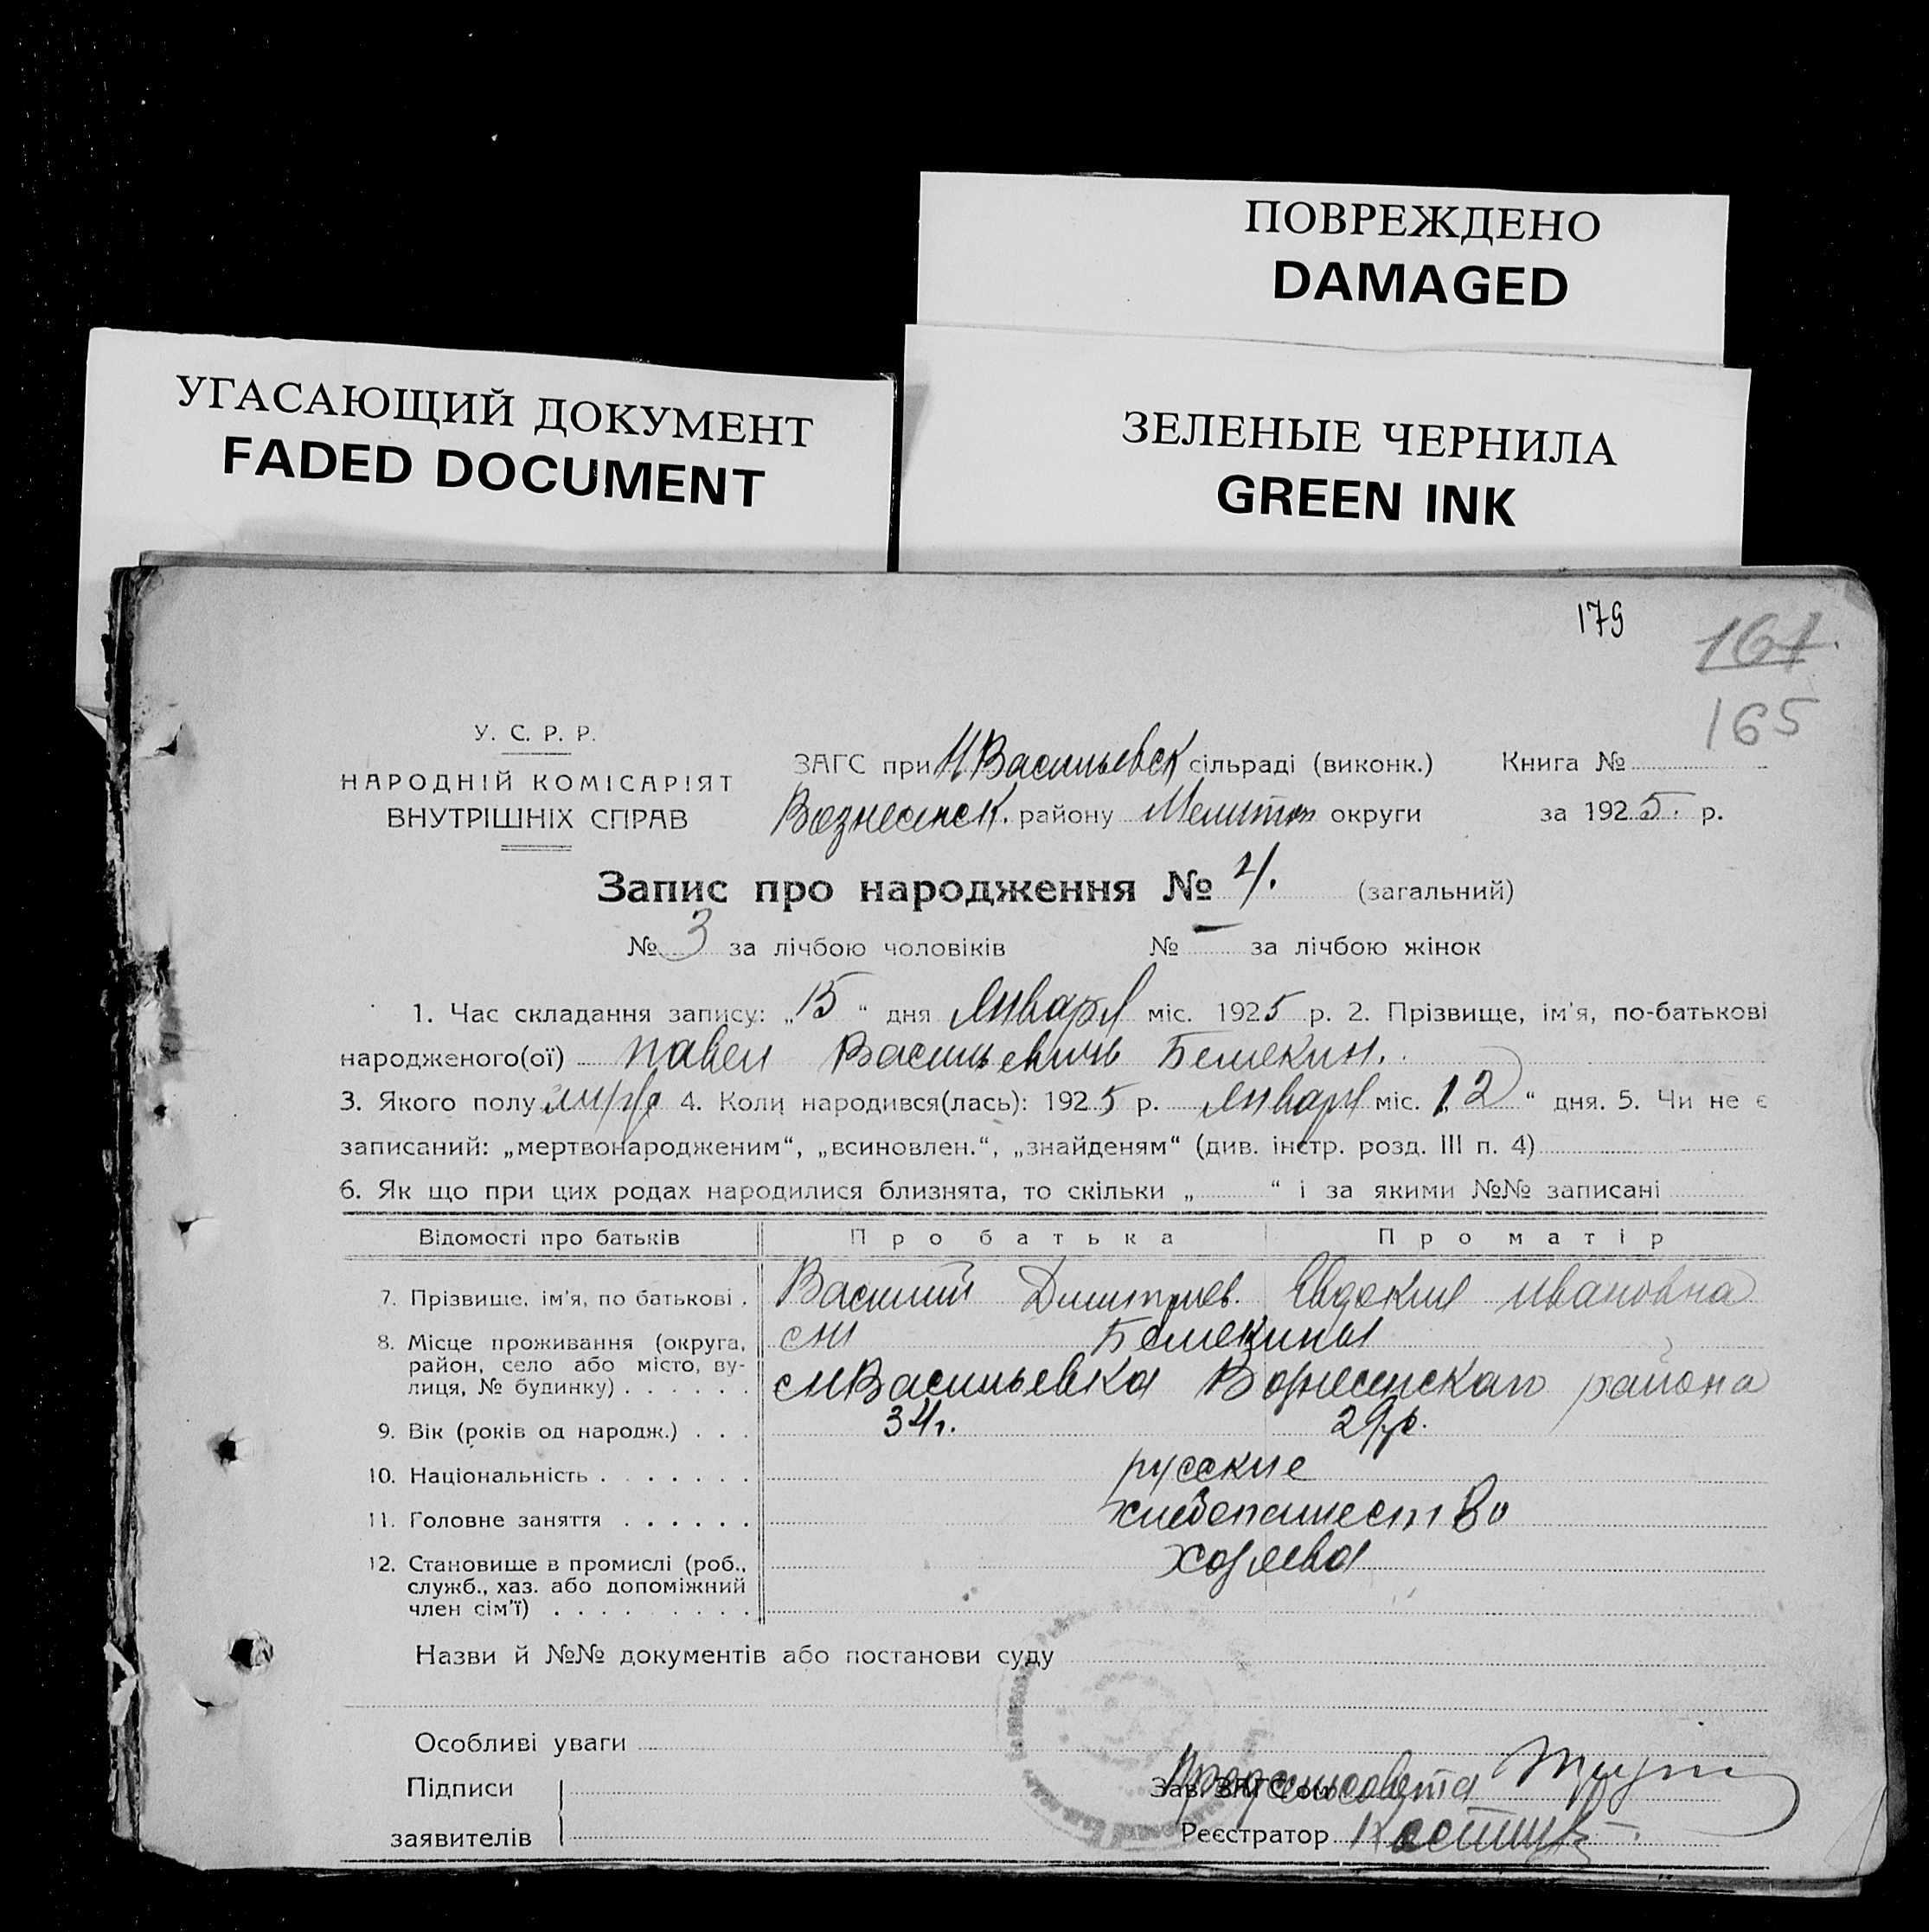 ПОВРЕЖДЕНО
DAMAGED
УГАСАЮЩИЙ ДОКУМЕНТ
FADED DOCUMENT
ЗЕЛЕНЫЕ ЧЕРНИЛА
GREEN INK
179
167.
165
У. С. Р. Р.
НАРОДНІЙ КОМІСАРІЯТ
ВНУТРІШНІХ СПРАВ
ЗАГС при Н Васильевск сільраді (виконк.) Книга №
Вознесенск. району Мелитоп округи за 1925. р.
Запис про народження № 4. (загальний)
№ 3 за лічбою чоловіків № — за лічбою жінок
1. Час складання запису: „15“ дня Января міс. 1925 р. 2. Прізвище, ім'я, по-батькові
народженого(ої) Павел Васильевичь Белекин.
3. Якого полу 4. Коли народився(лась): 1925 р. Января міс. 12“ дня. 5. Чи не є
записаний: „мертвонародженим“, „всиновлен.“, „знайденям“ (див. інстр. розд. III п. 4)
6. Як що при цих родах народилися близнята, то скільки „ “ і за якими №№ записані
Відомості про батьків Про батька Про матір
7. Прізвище, ім'я, по батькові . Василий Димитриев. Евдокия Ивановна
8. Місце проживання (округа, Белекины
район, село або місто, ву-
лиця, № будинку) . . . . . . с Н Васильевка Вознесенскаго района
9. Вік (років од народж.) . . . 34г. 29
10. Національність . . . . . . . русские
11. Головне заняття . . . . . . хлебопашество
12. Становище в промислі (роб., хозяева
служб., хаз. або допоміжний
член сім'ї) . . . . . . . . .
Назви й №№ документів або постанови суду
Особливі уваги
Підписи Зав. ЗАГС'ом Предсельсовета
заявителів Реєстратор